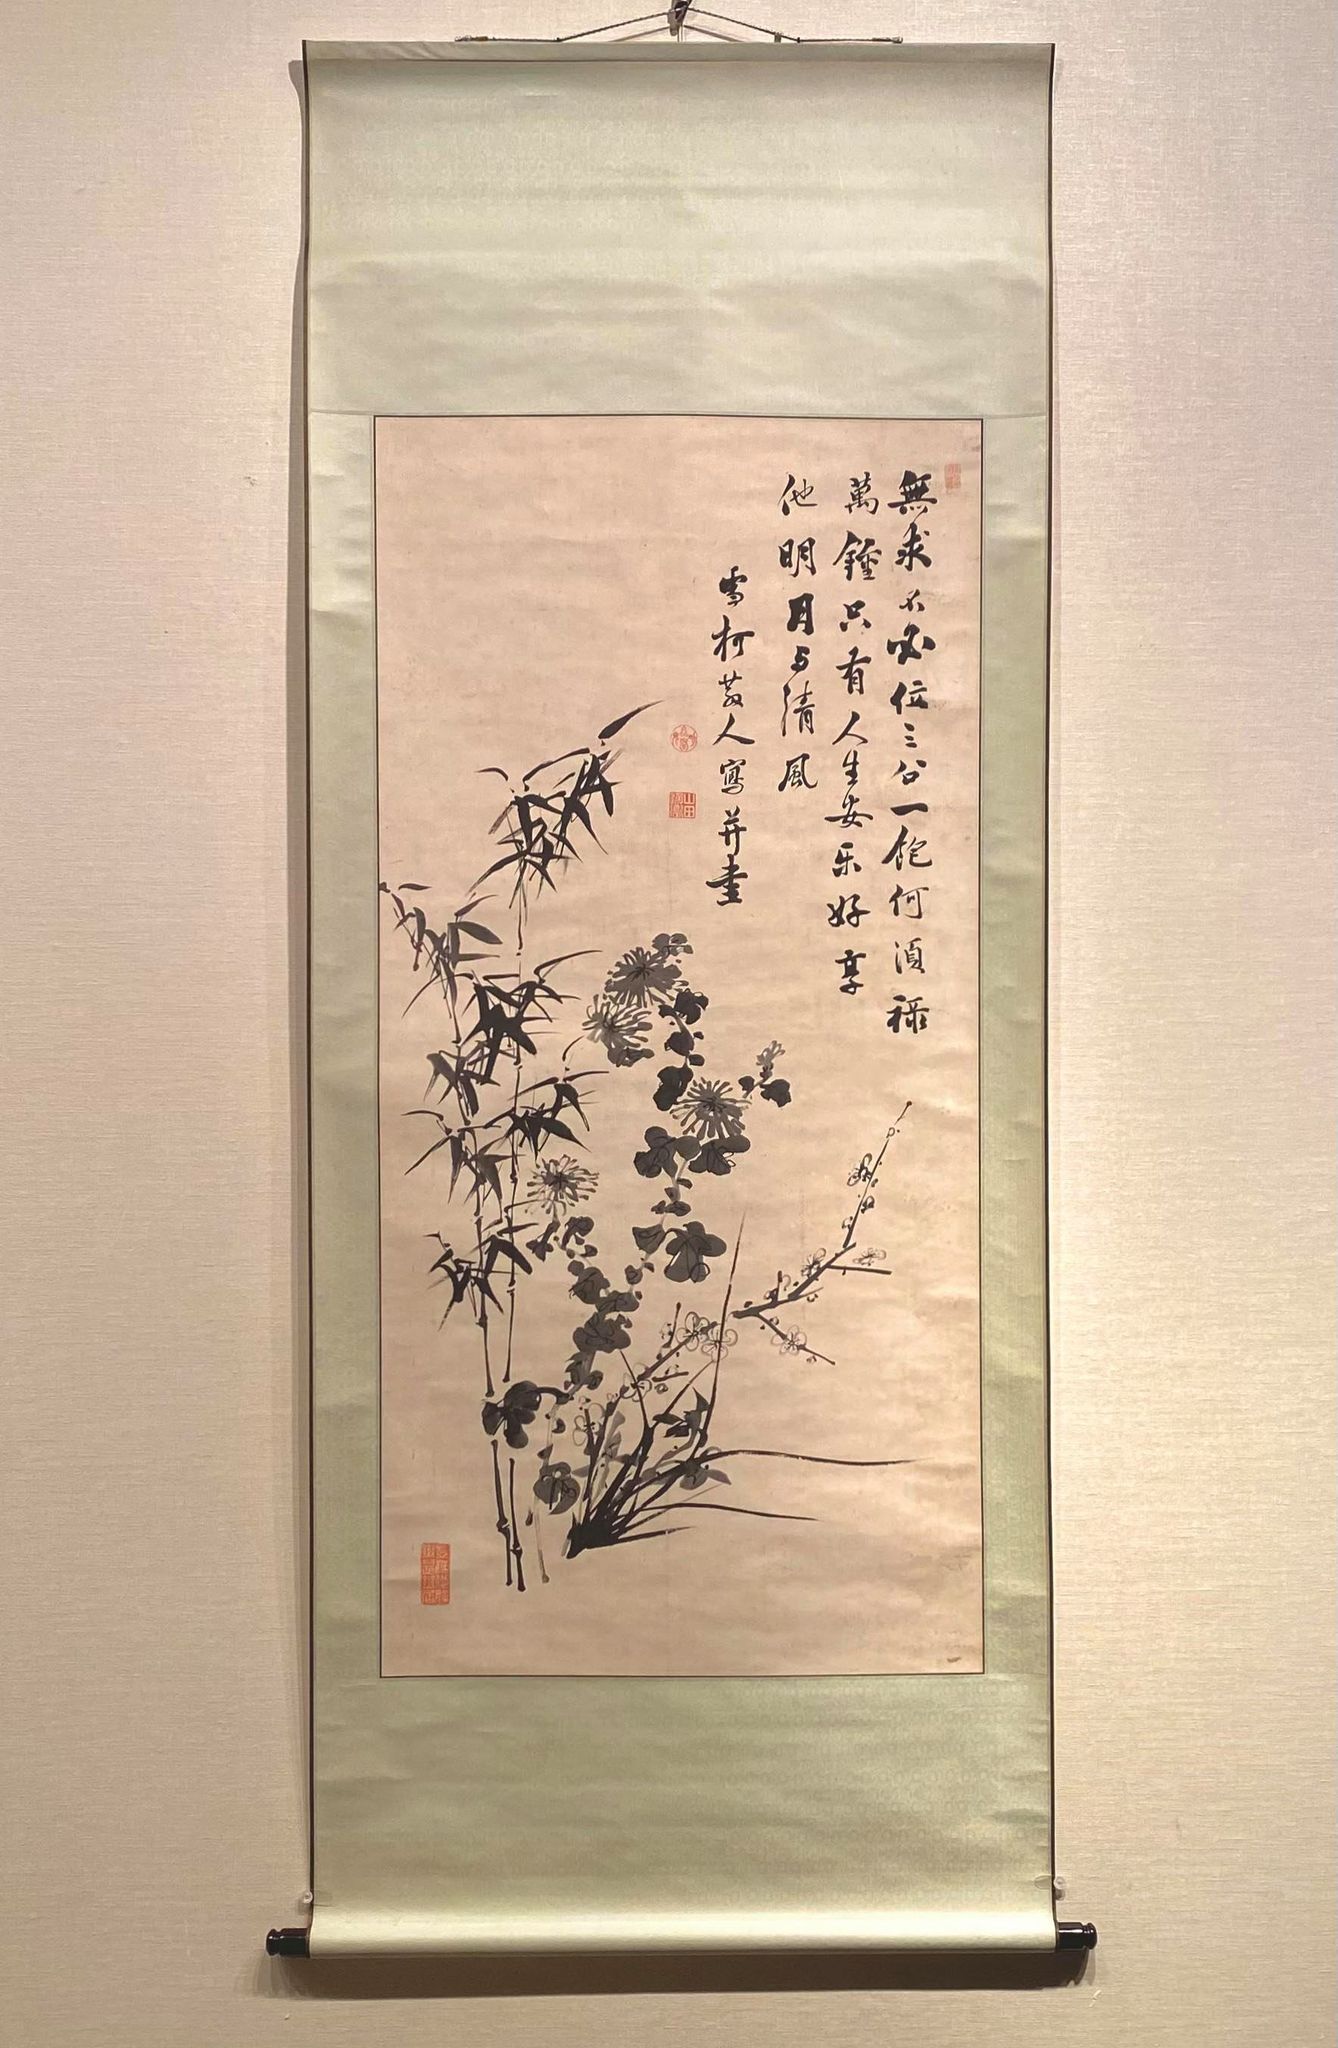 無求不必位三公一飽何須祿
萬鍾只有人生安樂好享
他明月与清風
雪柯散人寫并畫
山田